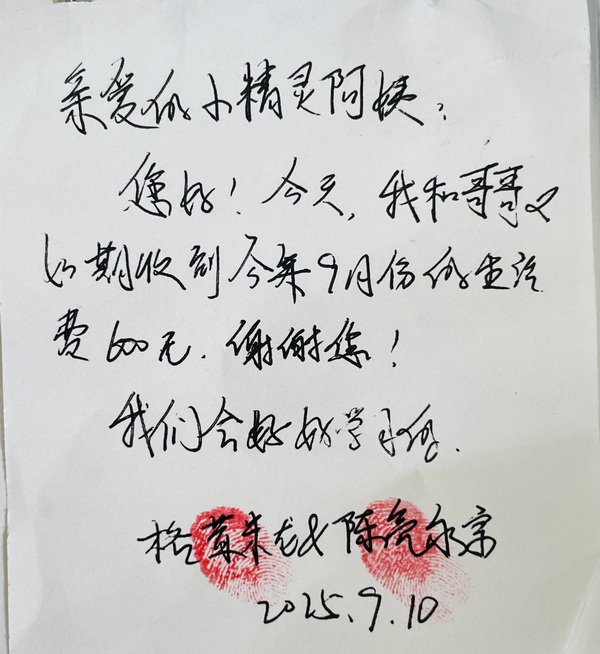 亲爱的小精灵阿姨：
您好！今天，我和哥哥又
如期收到今年9月份的生活
费600元．谢谢您！
我们会好好学习的．
格 朱龙& 陈亮
2025.9.10